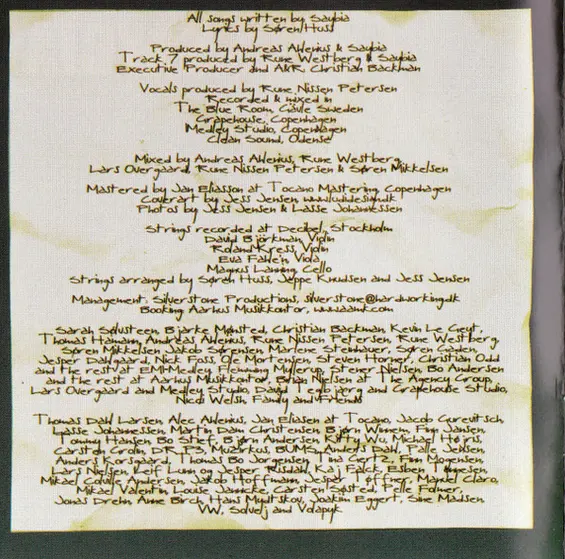 All songs written by Saybia
Lyrics by Søren Huss
Produced by Andreas Ahlenius & Saybia
Track 7 produced by Rune Westberg & Saybia
Executive Producer and A&R, Christian Backman
Vocals produced by Rune Nissen Petersen
Recorded & mixed in
The Blue Room, Gävle Sweden
Grapehouse, Copenhagen
Medley Studio, Copenhagen
Clean Sound, Odense
Mixed by Andreas Ahlenius, Rune Westberg,
Lars Overgaard, Rune Nissen Petersen & Søren Mikkelsen
Mastered by Jan Eliasson at Tocano Mastering, Copenhagen
Coverart by Jess Jensen,
Photos by Jess Jensen & Lasse Johannessen
Strings recorded at Decibel, Stockholm
David Björkman, Violin
Roland Kress, Violin
Eva Viola,
Magnus Lanning, Cello
Strings arranged by Søren Huss, Jeppe Knudsen and Jess Jensen
Management, Silverstone Productions, silverstone@hardworking.dk
Booking Aarhus Musikkontor, www.aamk.com
Sarah Bjarke Mønsted, Christian Backman, Kevin Le Geyt,
Thomas Hamann, Andreas Ahlenius, Rune Nissen Petersen, Rune Westberg,
Søren Mikkelsen, Jakob Sørensen, Marlene Steinhauer, Søren Gaden,
Jesper Dahlgaard, Nick Foss, Ole Mortensen, Steven Horner, Christian Odd
and the rest at EMI-Medley, Flemming Myllerup, Stener Nielsen, Bo Andersen
and the rest at Aarhus Musikkontor, Brian Nielsen at The Agency Group,
Lars Overgaard and Medley Studio, David and Grapehouse Studio,
Nicdi Welsh, Family and Friends
Thomas Dahl Larsen, Alec Ahlenius, Jan Eliasen at Tocano, Jacob Gurevitsch,
Lasse Johannessen, Martin Dam Christensen, Bjørn Finn Jensen,
Tommy Hansen, Bo Stief, Bjørn Andersen, Kitty Wu, Michael
Carsten DR, P3, BUMS, Anders Dahl, Palle Jensen,
Anders Korsgaard, Thomas Bo Jørgensen, Finn Mogensen,
Lars Nielsen, Leif Lunn og Jesper Kaj Falck, Esben
Mikael Andersen, Jakob Hoffmann, Jesper Manuel Claro,
Mikael Valentin, Louise Carsten Søsted, Pelle
Jonas Drehn, Anne Birch, Hans Joakim Eggert, Sine Madsen,
VW, and Volapyk.